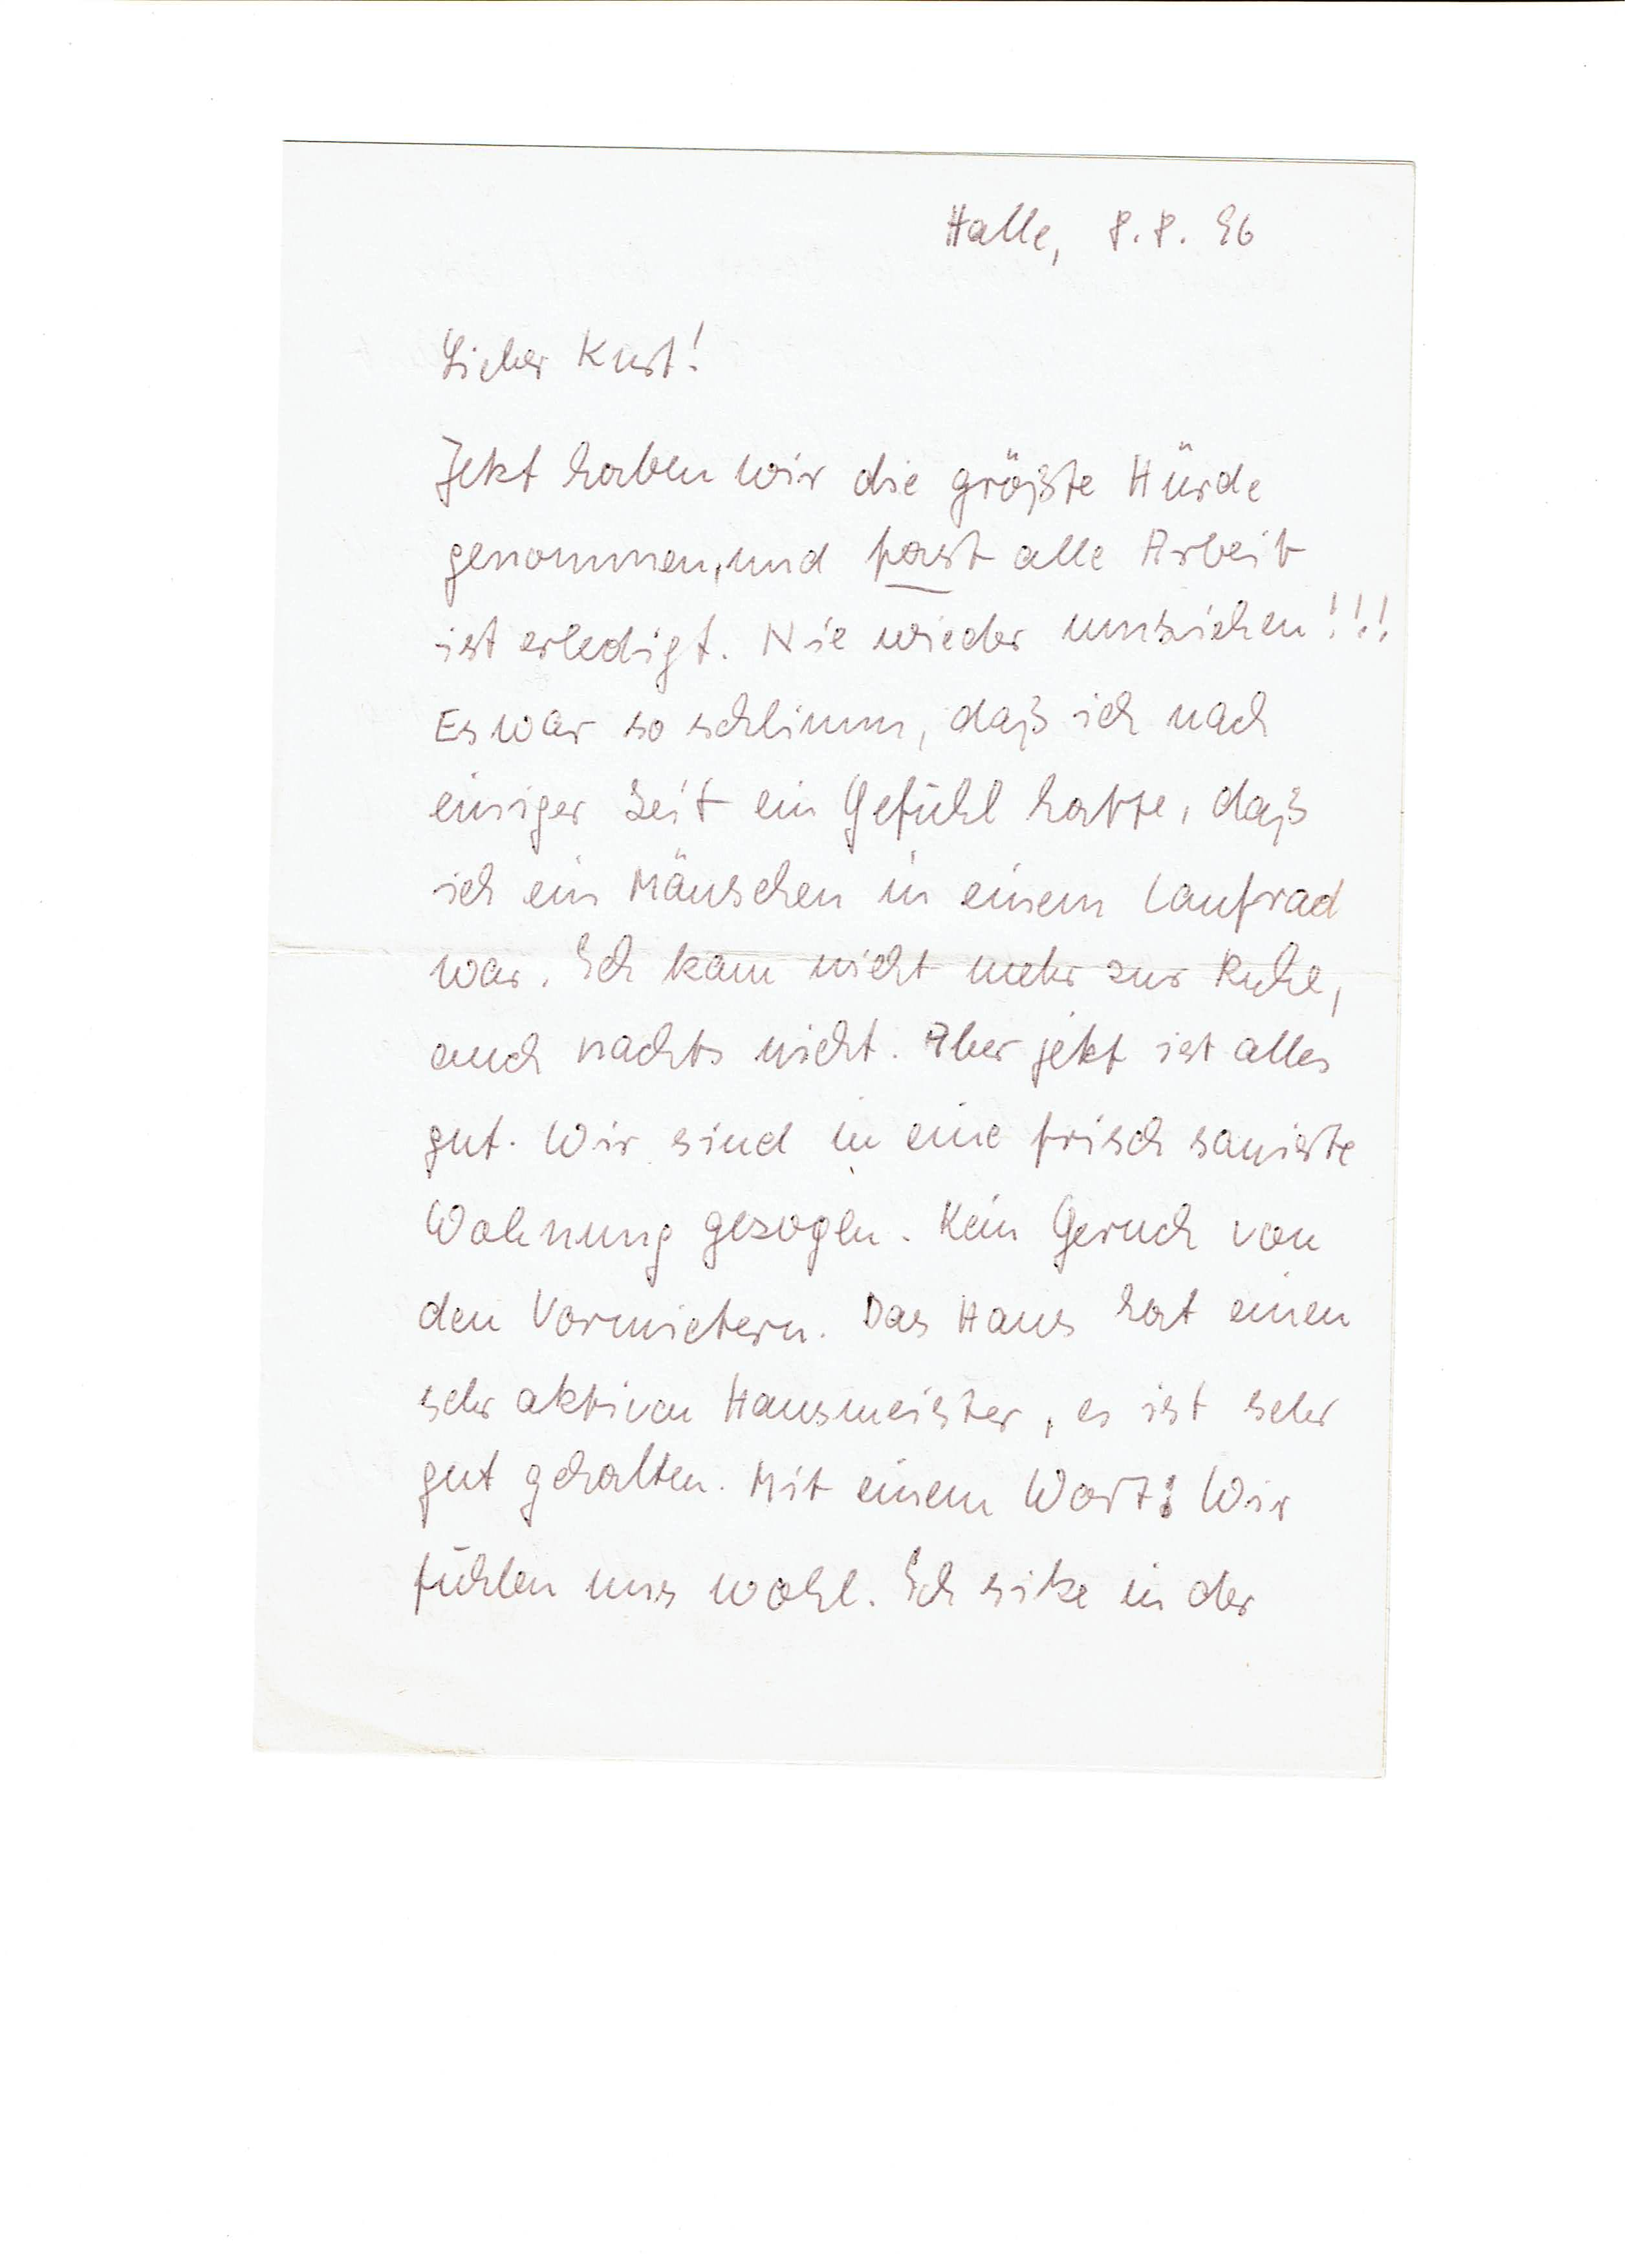 Halle, 8.8.96
Lieber Kurt!
Jetzt haben wir die größte Hürde
genommen, und fast alle Arbeit
ist erledigt. Nie wieder umziehen!!!
Es war so schlimm, daß ich nach
einiger Zeit ein Gefühl hatte, daß
ich ein Mäuschen in einem Laufrad
war. Ich kam nicht mehr zur Ruhe,
auch nachts nicht. Aber jetzt ist alles
gut. Wir sind in eine frisch sanierte
Wohnung gezogen. Kein Geruch von
den Vormietern. Das Haus hat einen
sehr aktiven Hausmeister, es ist sehr
gut gehalten. Mit einem Wort: Wir
fühlen uns wohl. Ich sitze in der